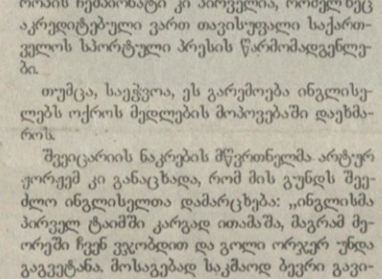 როპის ჩემპიონატი კი პირველია, რომელზეც
აკრედიტებული ვართ თავისუფალი საქართ-
ველოს სპორტული პრესის წარმომადგენლე-
ბი.
თუმცა, საეჭვოა, ეს გარემოება ინგლისე-
ლებს ოქროს მედლების მოპოვებაში დაეხმა-
როს.
შვეიცარიის ნაკრების მწვრთნელმა არტურ
ჟორჟემ კი განაცხადა, რომ მის გუნდს შეე-
ძლო ინგლისელთა დამარცხება: „ინგლისმა
პირველ ტაიმში კარგად ითამაშა, მაგრამ მე-
ორეში ჩვენ ვჯობდით და გოლი ორჯერ უნდა
გაგვეტანა. მოსაგებად საკმაოდ ბევრი გავი-